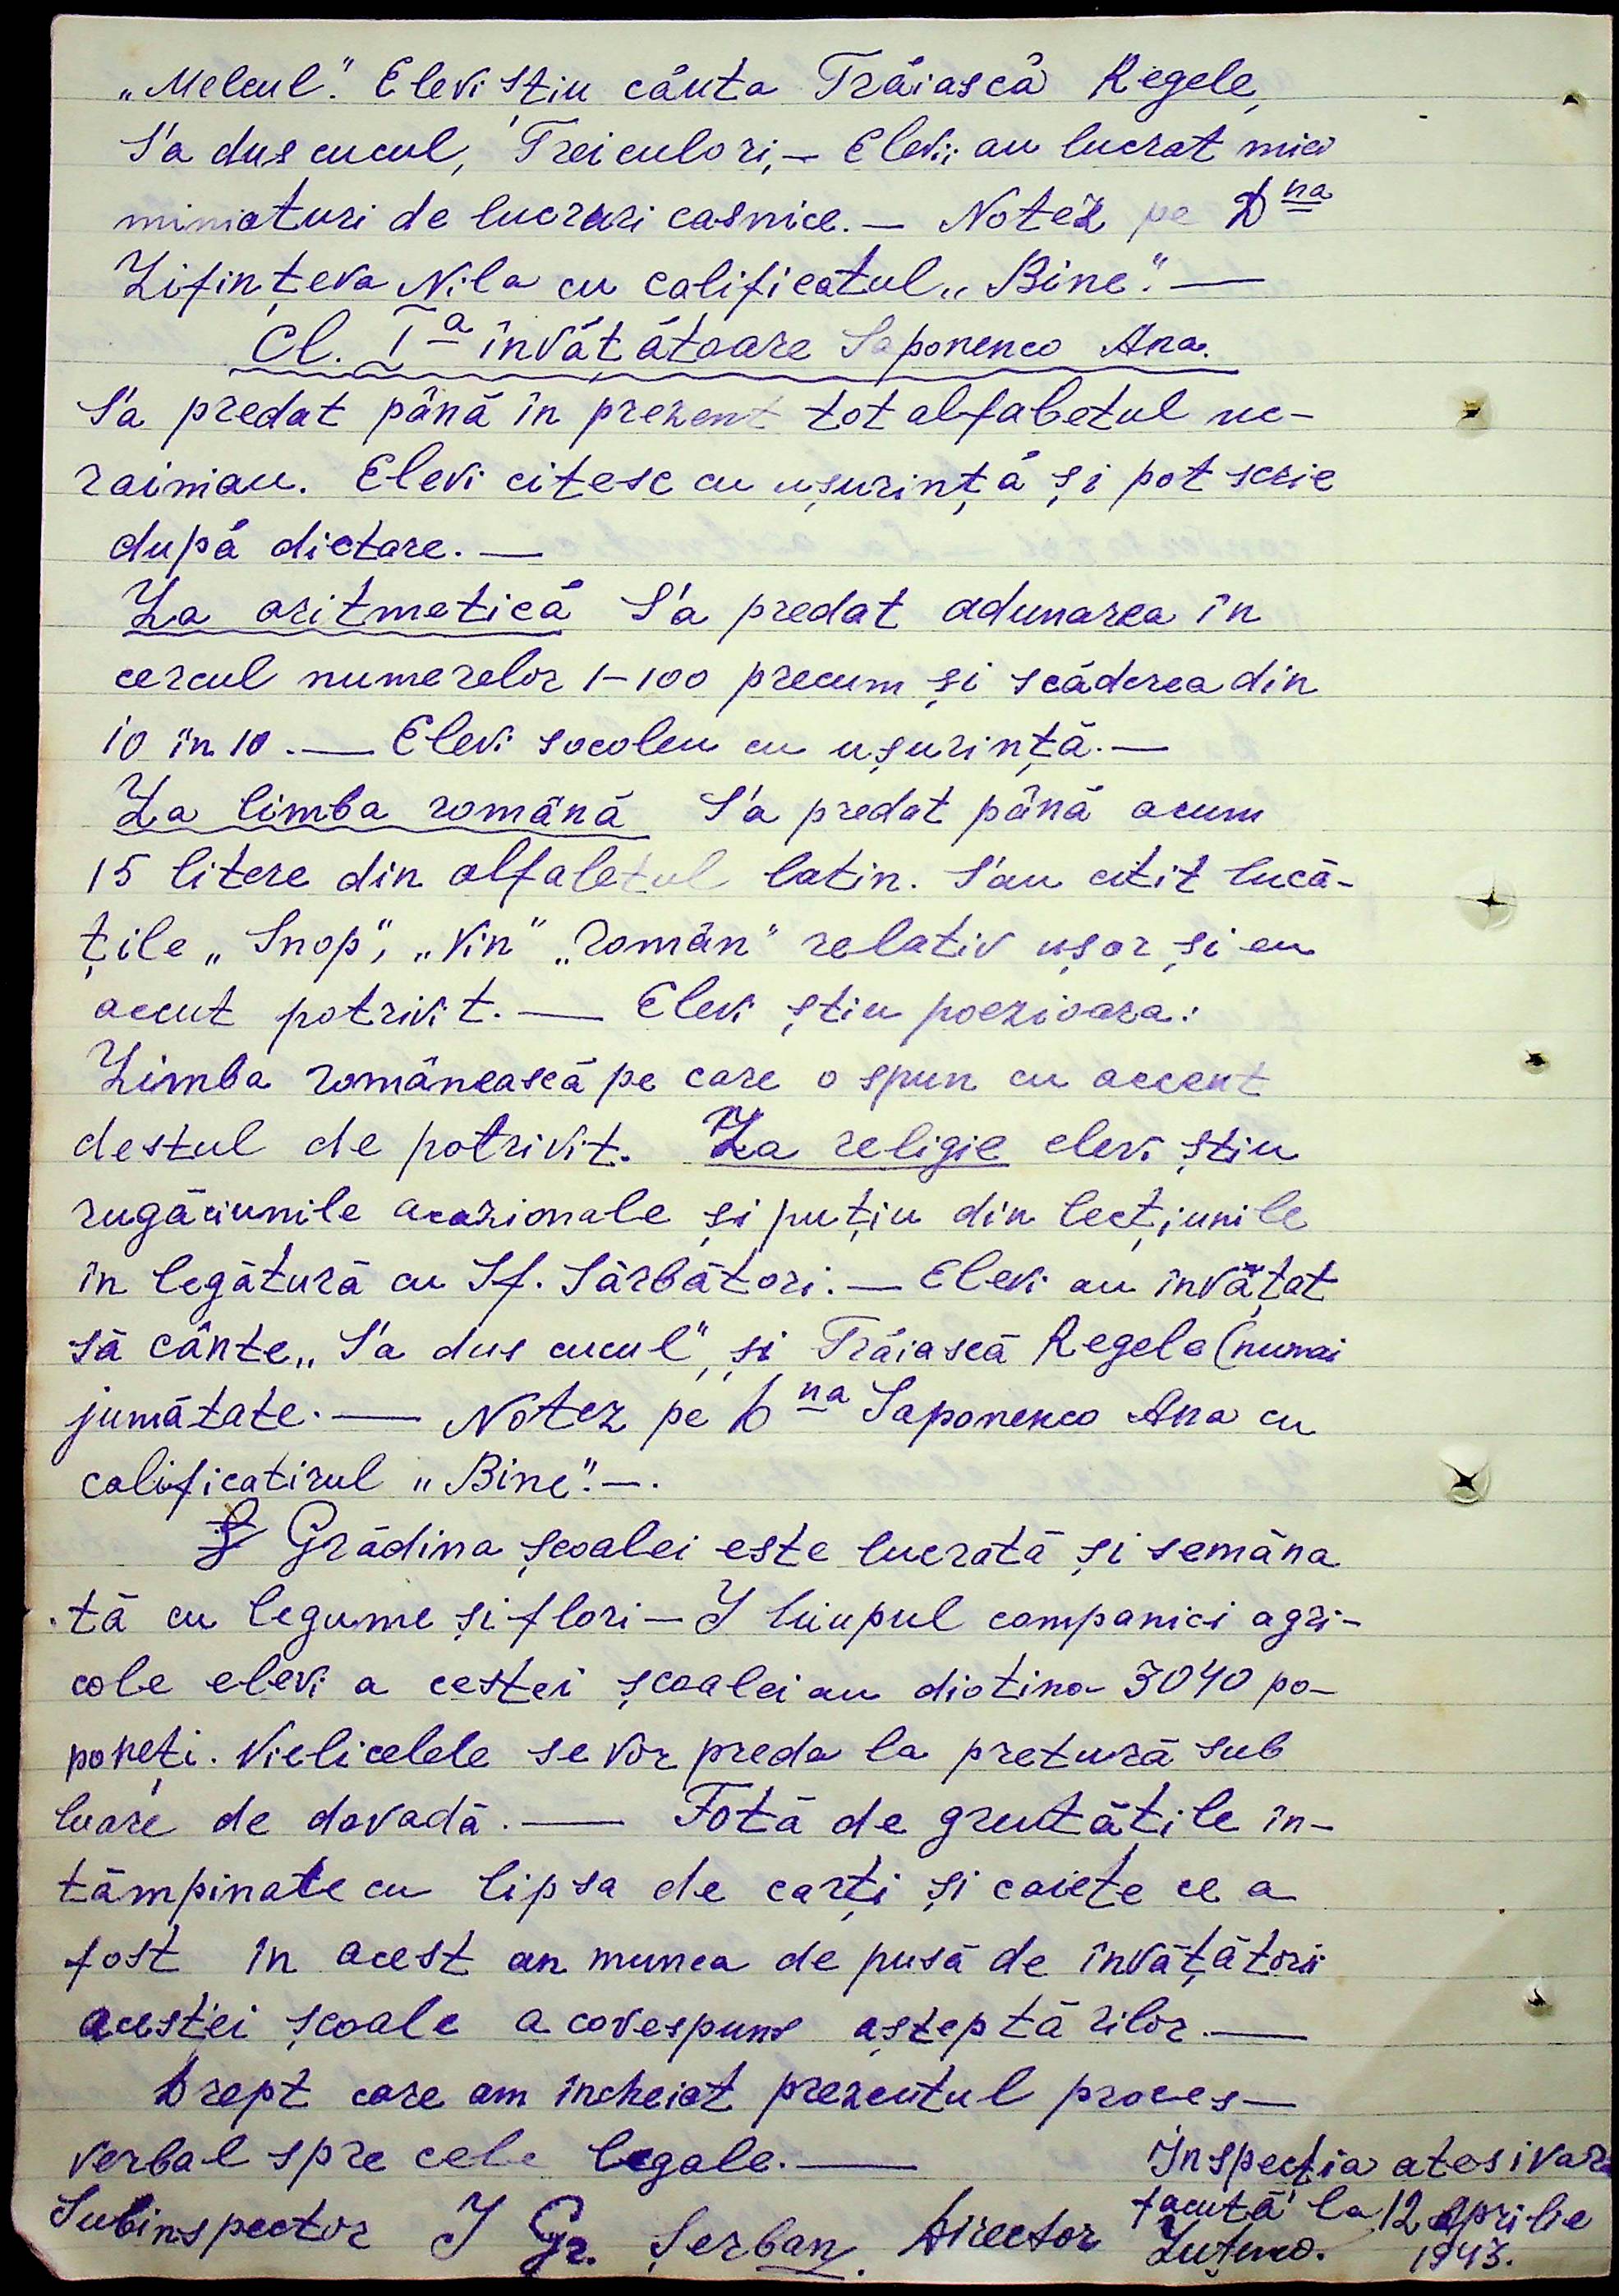 „Melcul”. Elevi știu cânta Trăiască Regele,
S'a dus cucul, Treiculori, — Elevii au lucrat mici
miniaturi de lucruri casnice. — Notez pe Dna
Lifințeva Nila cu calificatul „Bine”. —
Cl. I a învățătoare Saponenco Ana.
S'a predat până în prezent tot alfabetul uc-
rainian. Elevi citesc cu ușurință și pot scrie
după dictare. —
La aritmetică S'a predat adunarea în
cercul numerelor 1-100 precum și scăderea din
10 în 10. — Elevi socoleu cu ușurință. —
La limba română S'a predat până acum
15 litere din alfabetul latin. S'au citit bucă-
țile „Snop”, „Vin” „Român” relativ ușor și cu
accut potrivit. — Elevi știu poezioara:
Limba românească pe care o spun cu accent
destul de potrivit. La religie elevi știu
rugăciunile ocazionale și puțiu din lecțiunile
în legătură cu Sf. Sărbători. — Elevi au învățat
să cânte „S'a dus cucul” și Trăiască Regele (numai
jumătate. — Notez pe Dna Saponenco Ana cu
calificativul „Bine”. —.
Grădina școalei este lucrată și semăna
tă cu legume și flori — I timpul companiei agri-
cole elevi a cestei școalei au 3040 po-
poneți. se vor preda la pretură sub
luare de dovadă. — Fotă de greutățile în-
tâmpinate cu lipsa de carți și caiete ce a
fost în acest an munca de pusă de învățătorii
acestei școale a corespuns așteptărilor. —
Drept care am încheiat prezentul proces —
verbal spre cele legale. —
Inspecția
facută la 12 Aprilie
1943.
Subinspector I Gr. Șerban. Director Luțenco.